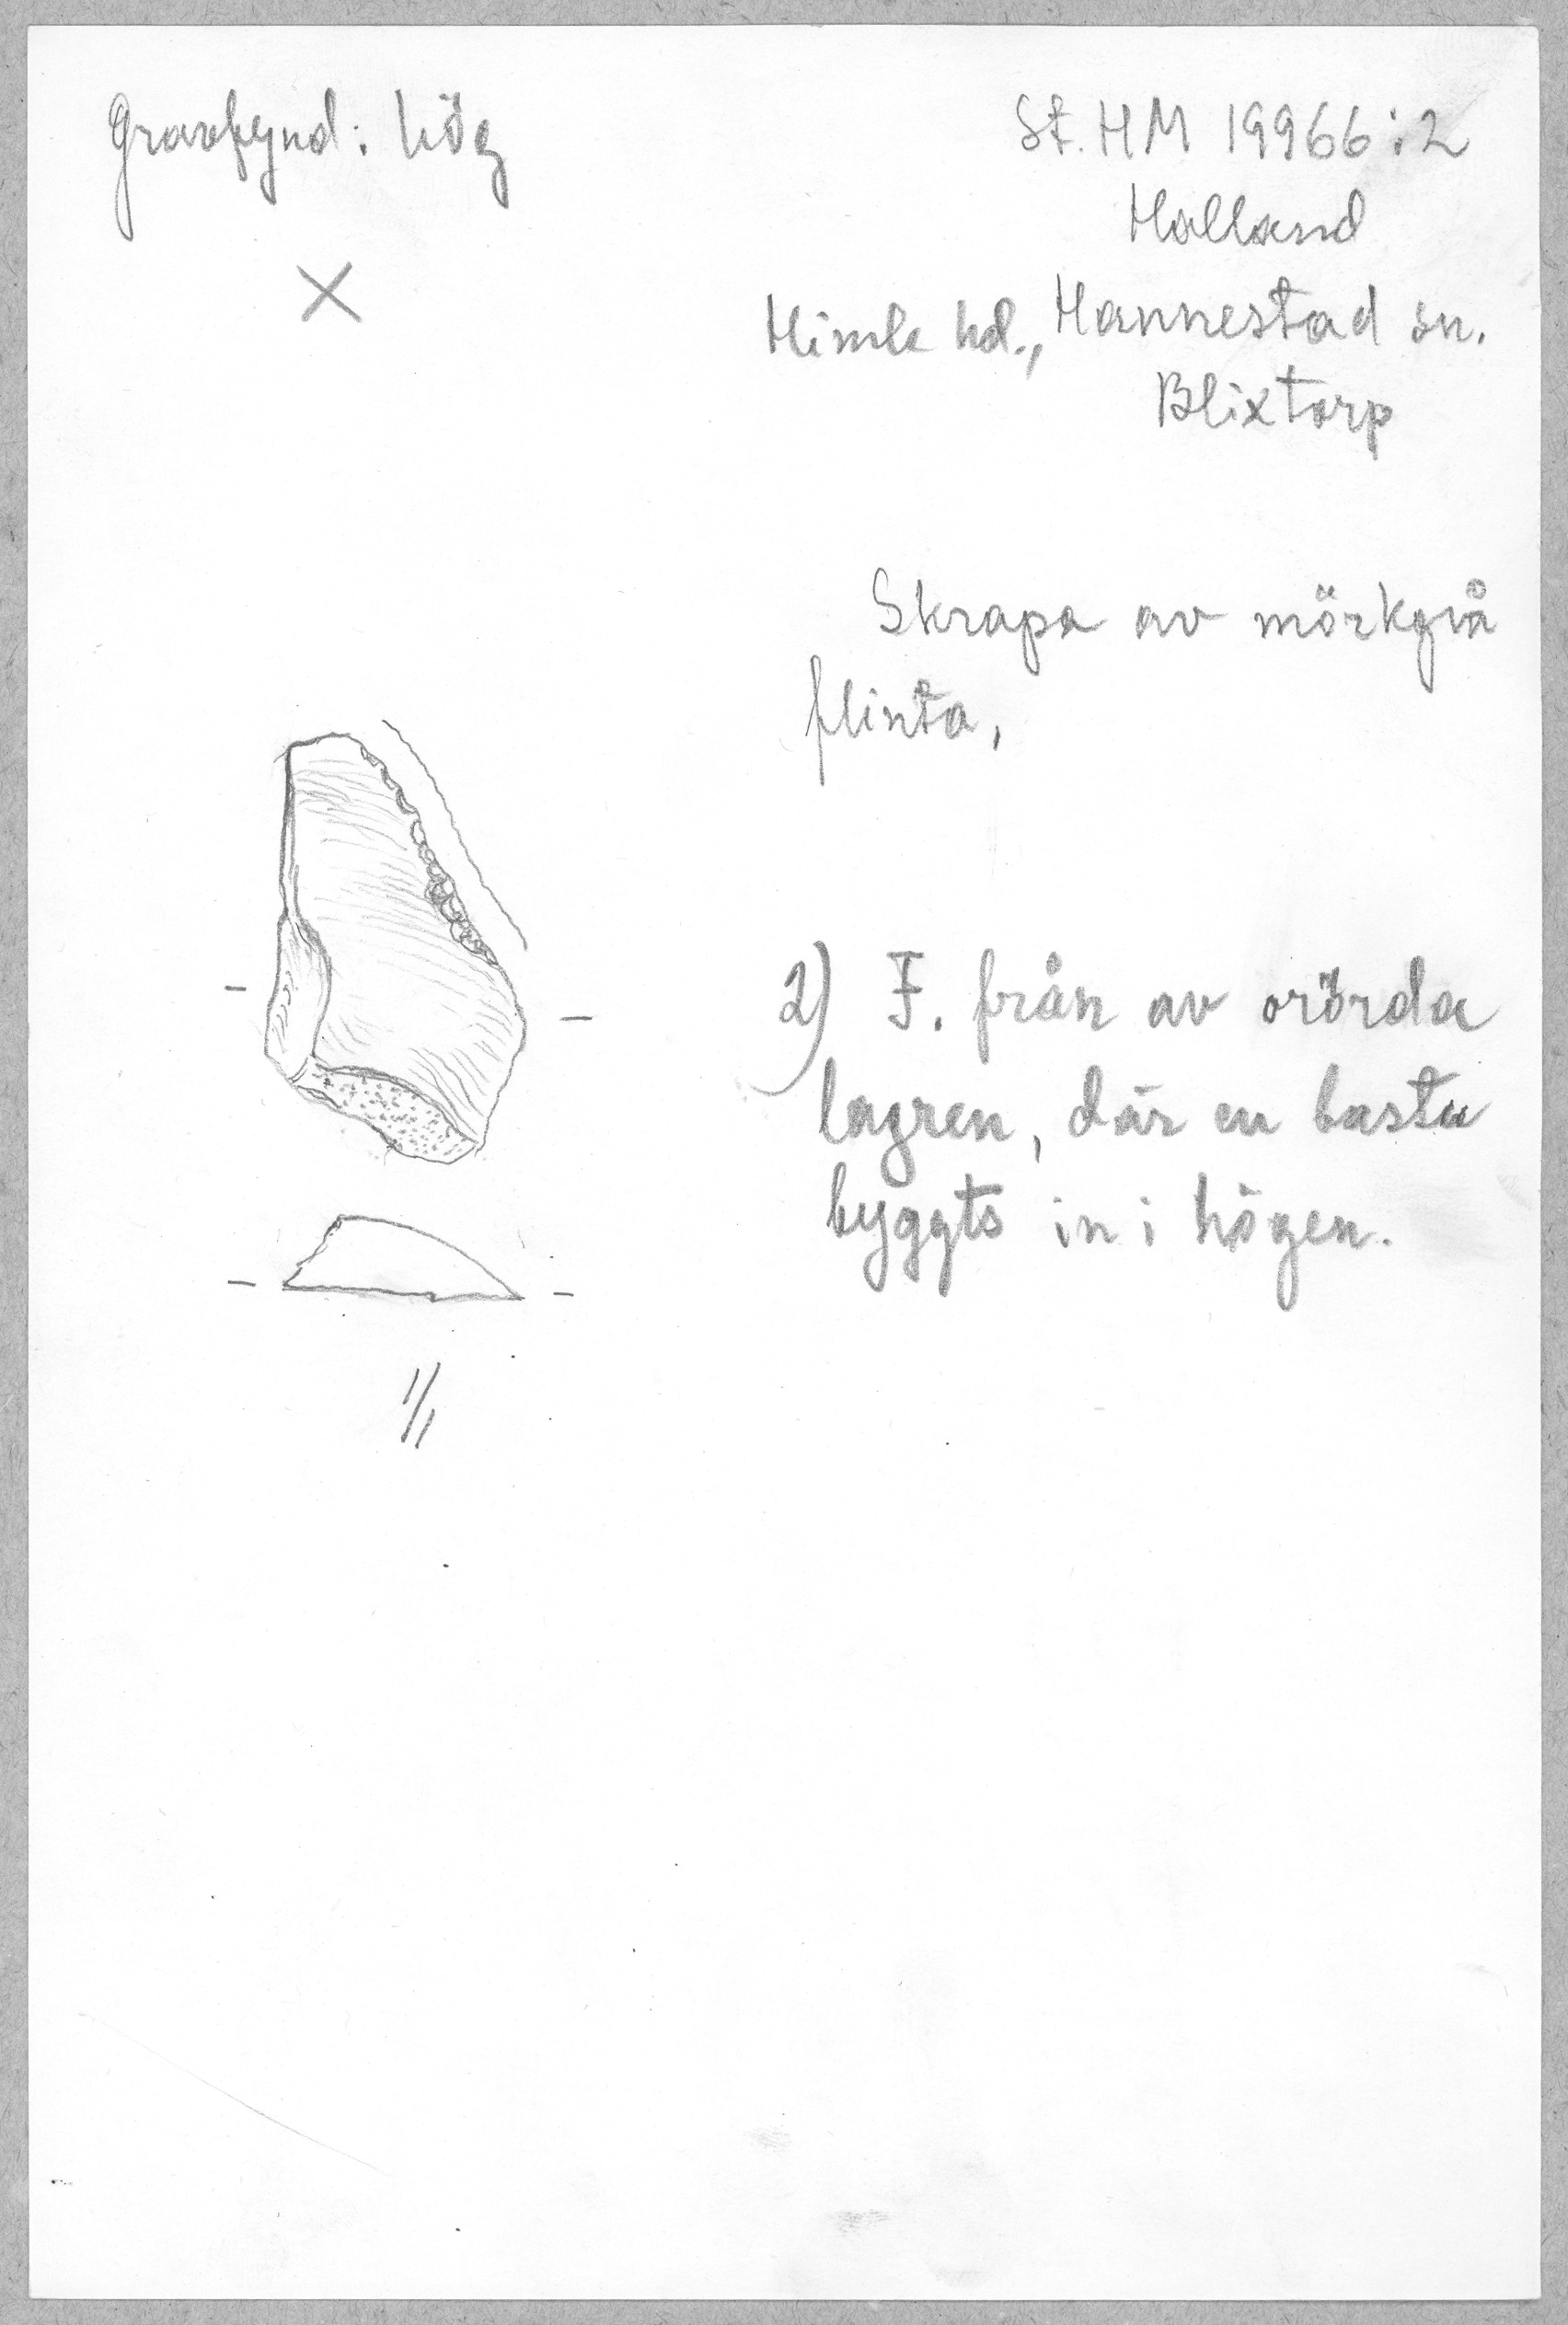 Gravfynd: hög
X
St. HM 19966:2
Halland
Himle hd., Hannestad sn.
Blixtorp
Skrapa av mörkgrå
flinta,
2) F. från av orörda
lagren, där en bastu
byggts in i högen.
1/1